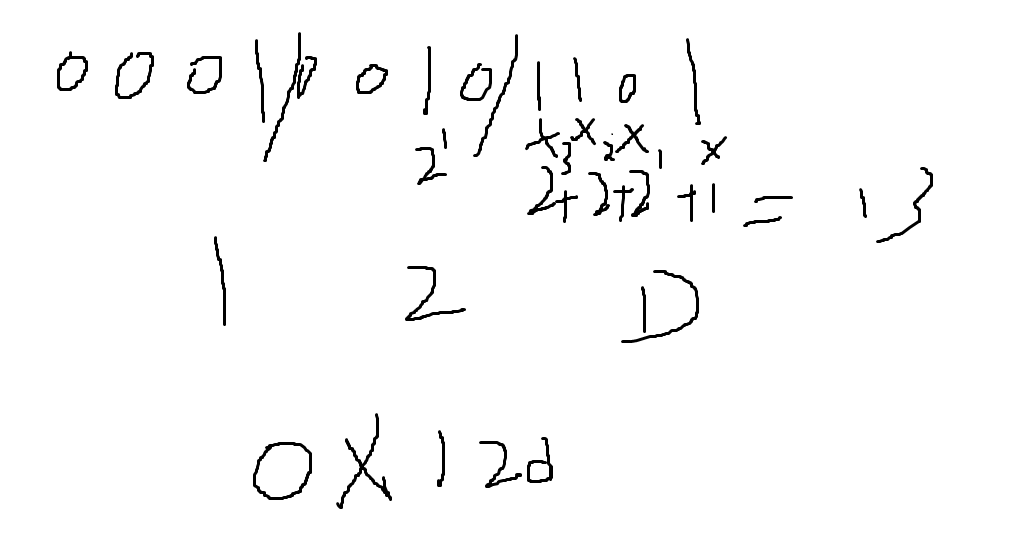 0001/0010/1101
2¹ x x x x
2³+2²+2¹+1 = 13
1 2 D
0x12d